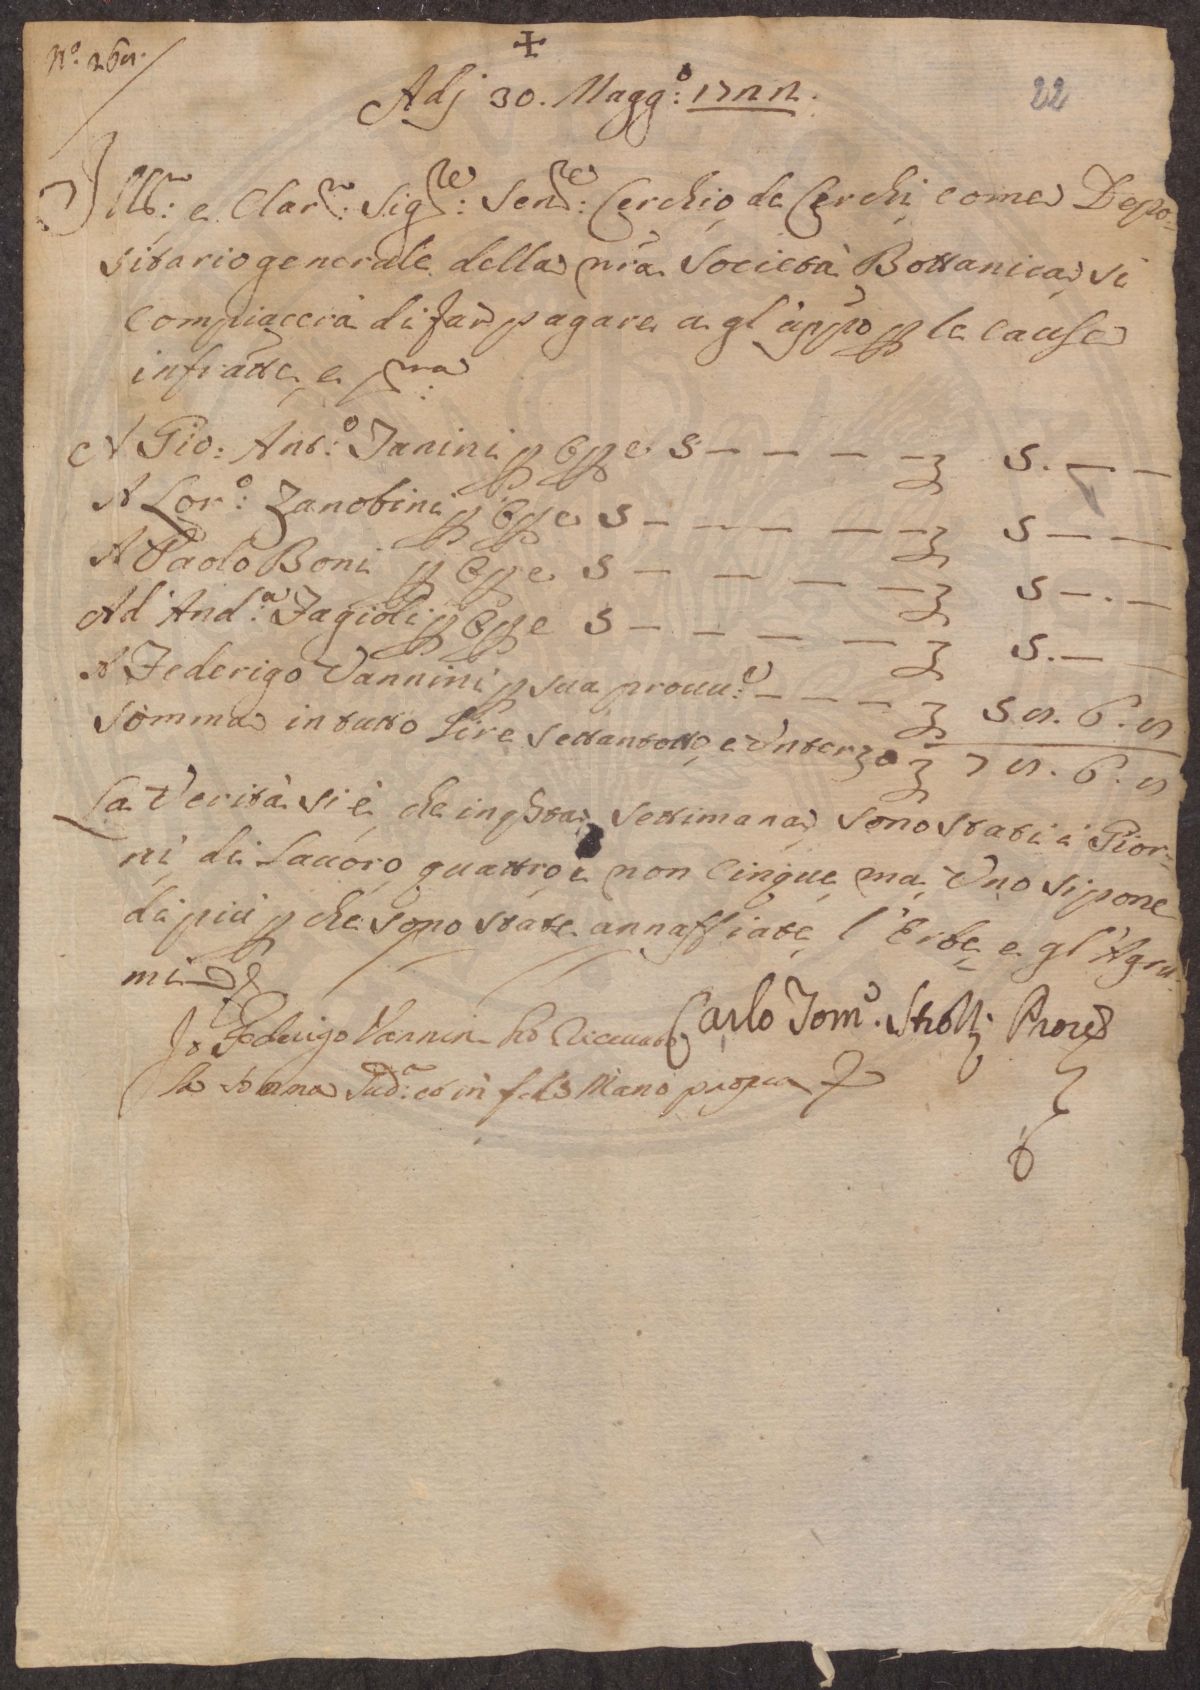 ✝
Adj 30. Magg.o: 1722.
22
Ill.mo: e Clar.mo: Sig.re: Sen.re: Cerchio de Cerchi come Depo-
sitario generale della nra Società Bottanica, si
compiacerà di far pagare a gl'appo p le cause
infratte, e p.ma
A Gio: Ant.o: Janini p opre 5 — — — — 5. — —
A Lor.o: Zanobini p opre 5 — — — — 5 — —
A Paolo Boni p opre 5 — — — — 5 — . —
Ad And.a: Fagioli p opre 5 — — — — 5. — —
A Federigo Vannini p sua prouu.e — — —
Somma in tutto Lire settantotto, e Un terzo
La Verità si è, che in qsta settimana, sono stati i Gior-
ni di Lauoro quattro, e non Cinque, ma Uno si pone
di più p che sono state annaffiate l'Erbe, e gl'Agru-
mi
Carlo Tom.o Strozzi Proue.
Io Federigo Vannini ho Riceuuto
la Somma Sud.a: et in fede Mano propria